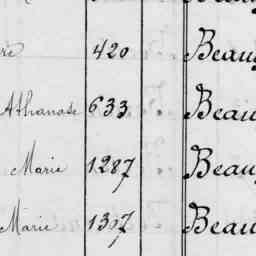 re 420 Beau
Athanase 633 Beau
Marie 1287 Beau
Marie 1317 Beau